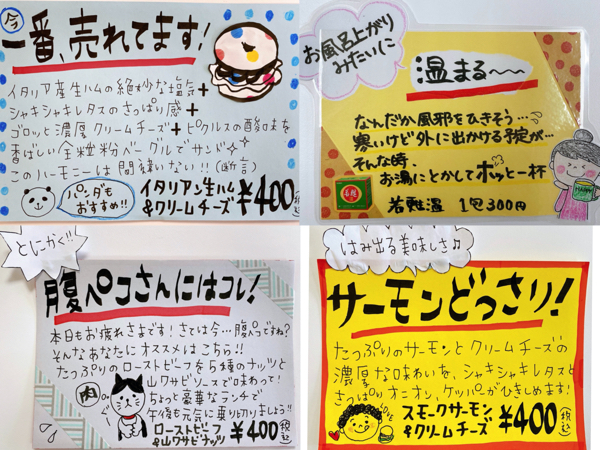 今
一番、売れてます!
イタリア産生ハムの絶妙な塩気+
シャキシャキレタスのさっぱり感+
ゴロッと濃厚クリームチーズ+ピクルスの酸味を
香ばしい全粒粉ベーグルでサンド
このハーモニーは間違いない!!(断言)
パンダも
おすすめ!!
イタリアン生ハム
&クリームチーズ ¥400(税込)
お風呂上がり
みたいに
温まる〜〜
なんだか風邪をひきそう…
寒いけど外に出かける予定が…
そんな時、
お湯にとかしてホッと一杯
若甦温 1包300円
HAPPY
とにかく!!
腹ペコさんにはコレ!
本日もお疲れさまです!さては今…腹ペコですね?
そんなあなたにオススメはこちら!!
たっぷりのローストビーフを5種のナッツと
山ワサビソースで味わって!
ちょっと豪華なランチで
午後も元気に乗り切りましょう!!
肉
ローストビーフ
&山ワサビナッツ ¥400(税込)
はみ出る美味しさ♪
サーモンどっさり!
たっぷりのサーモンとクリームチーズの
濃厚な味わいを、シャキシャキレタスと
さっぱりオニオン、ケッパーがひきしめます!
スモークサーモン
&クリームチーズ ¥400(税込)